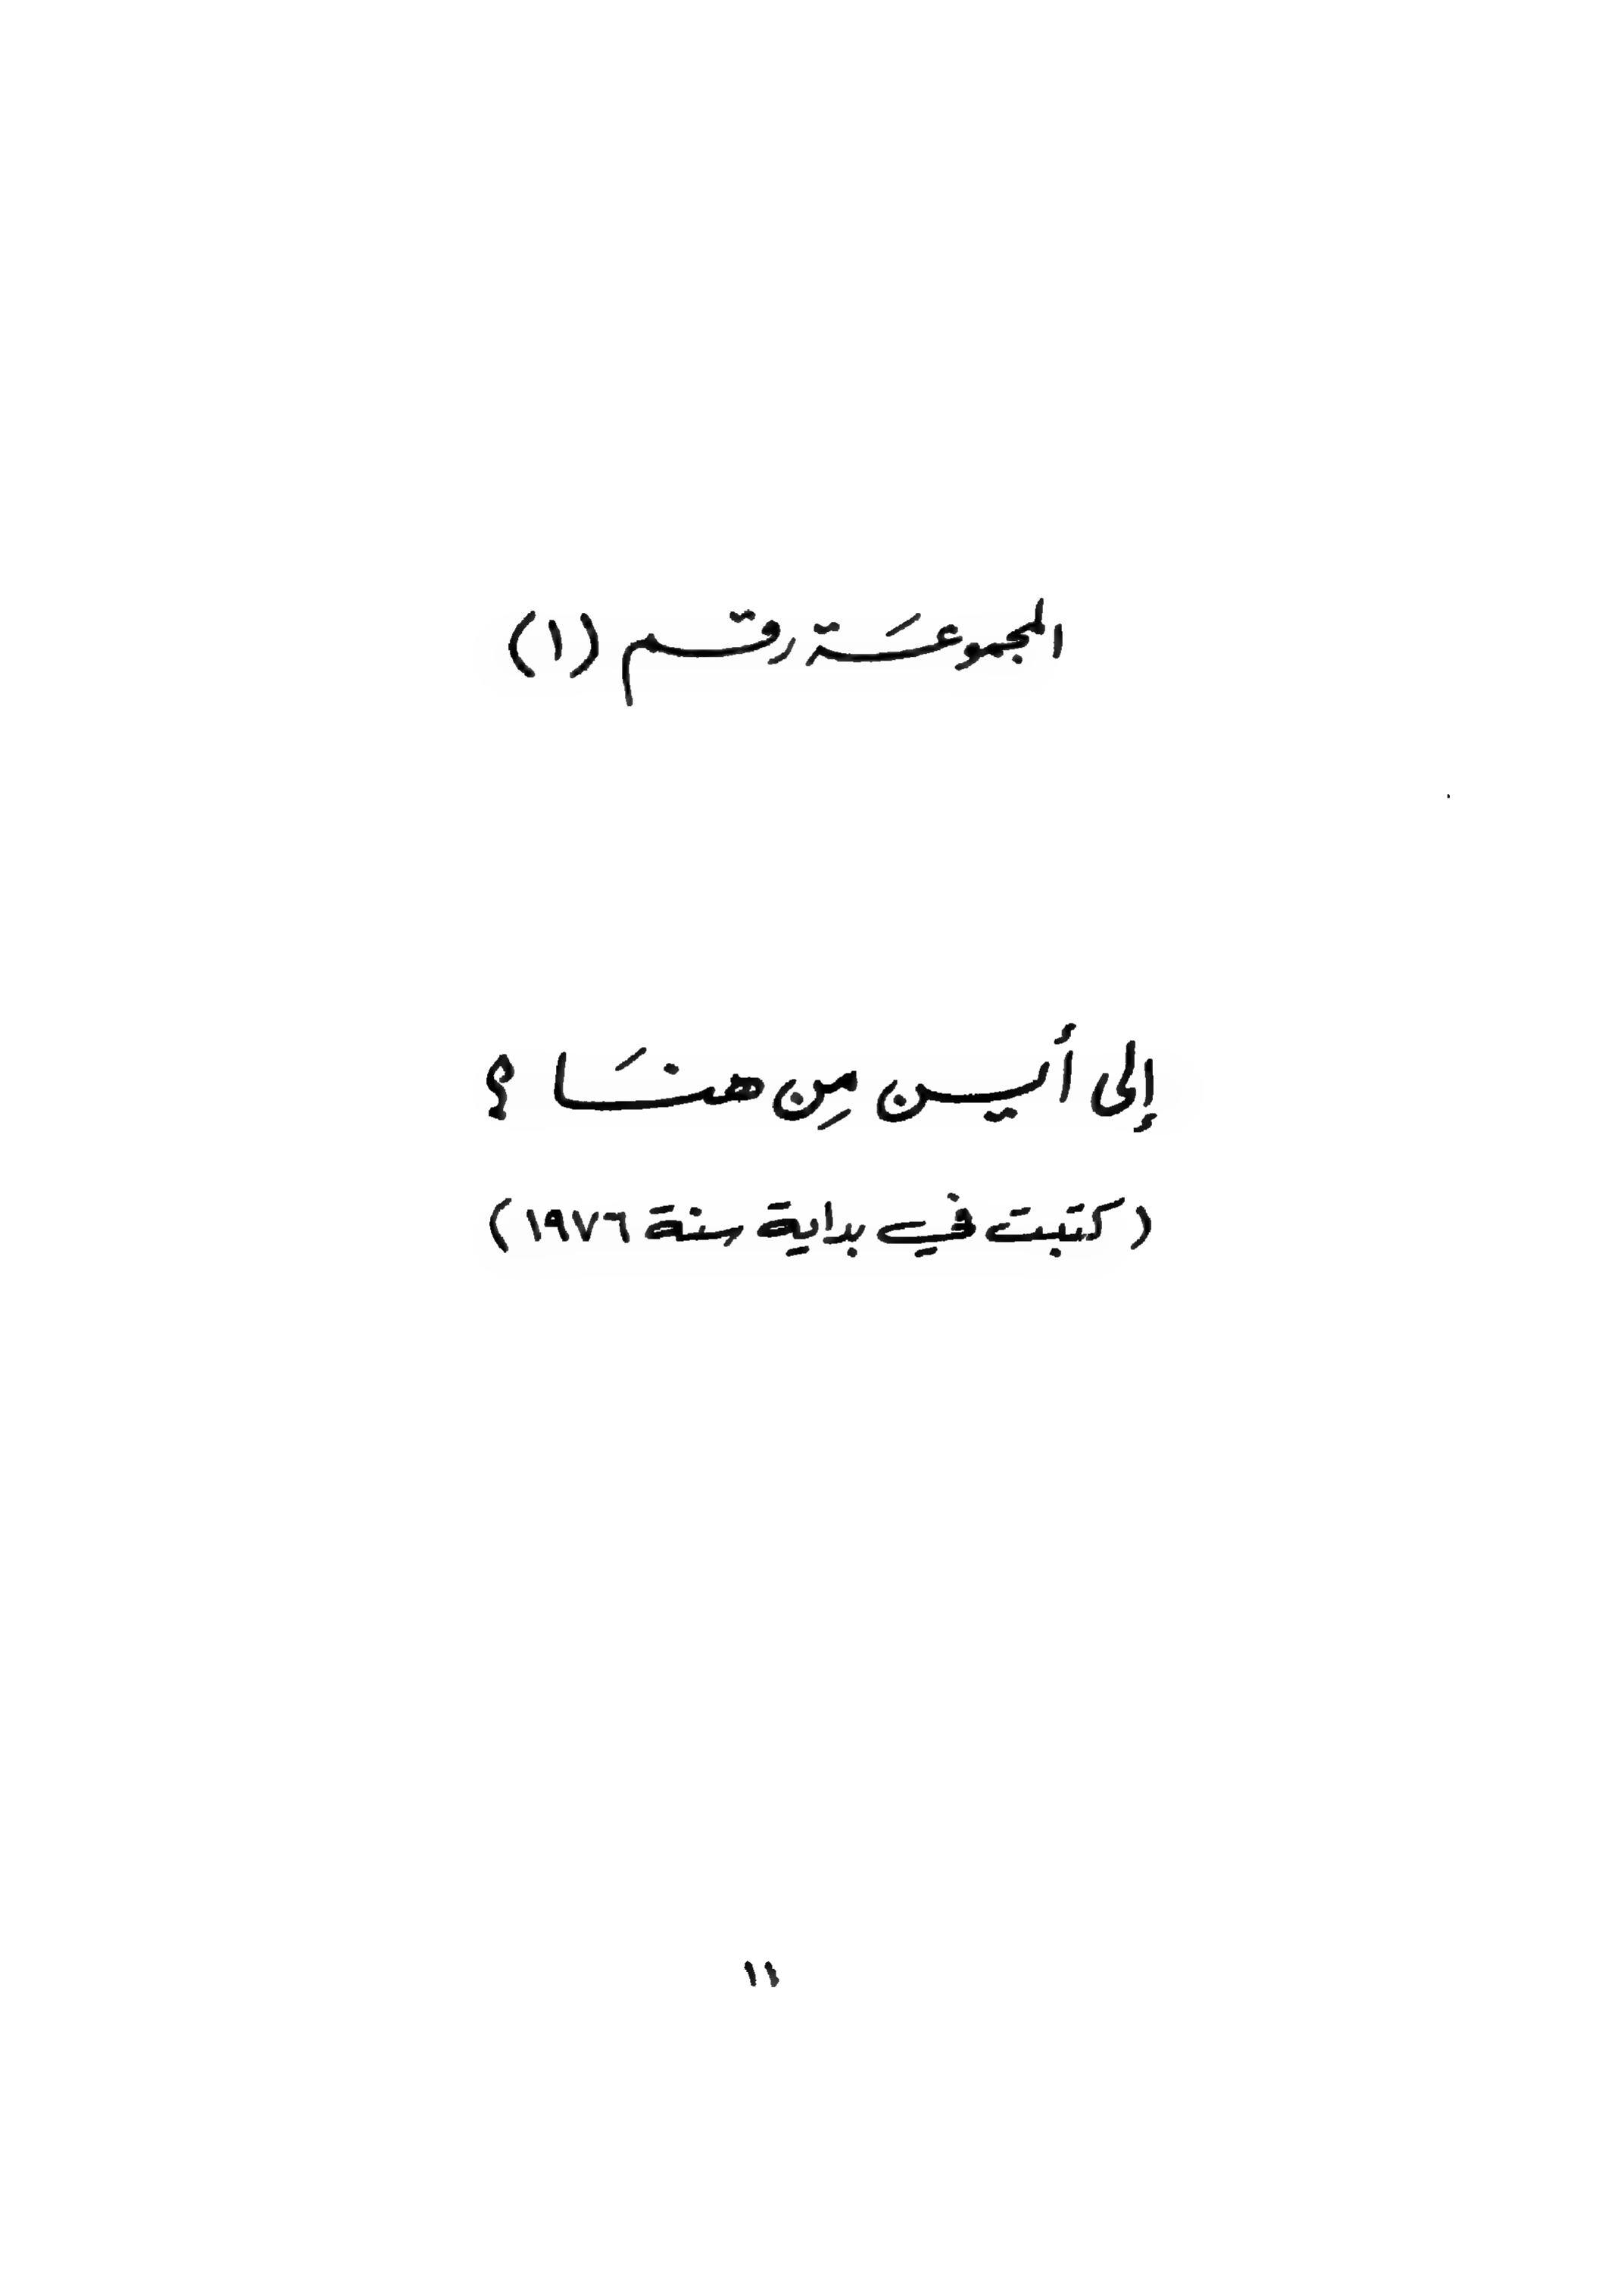 المجموعَة رقم (١)
إلى أين مِن هنَا ؟
(كتبت في بداية سنة ١٩٧٦)
١١